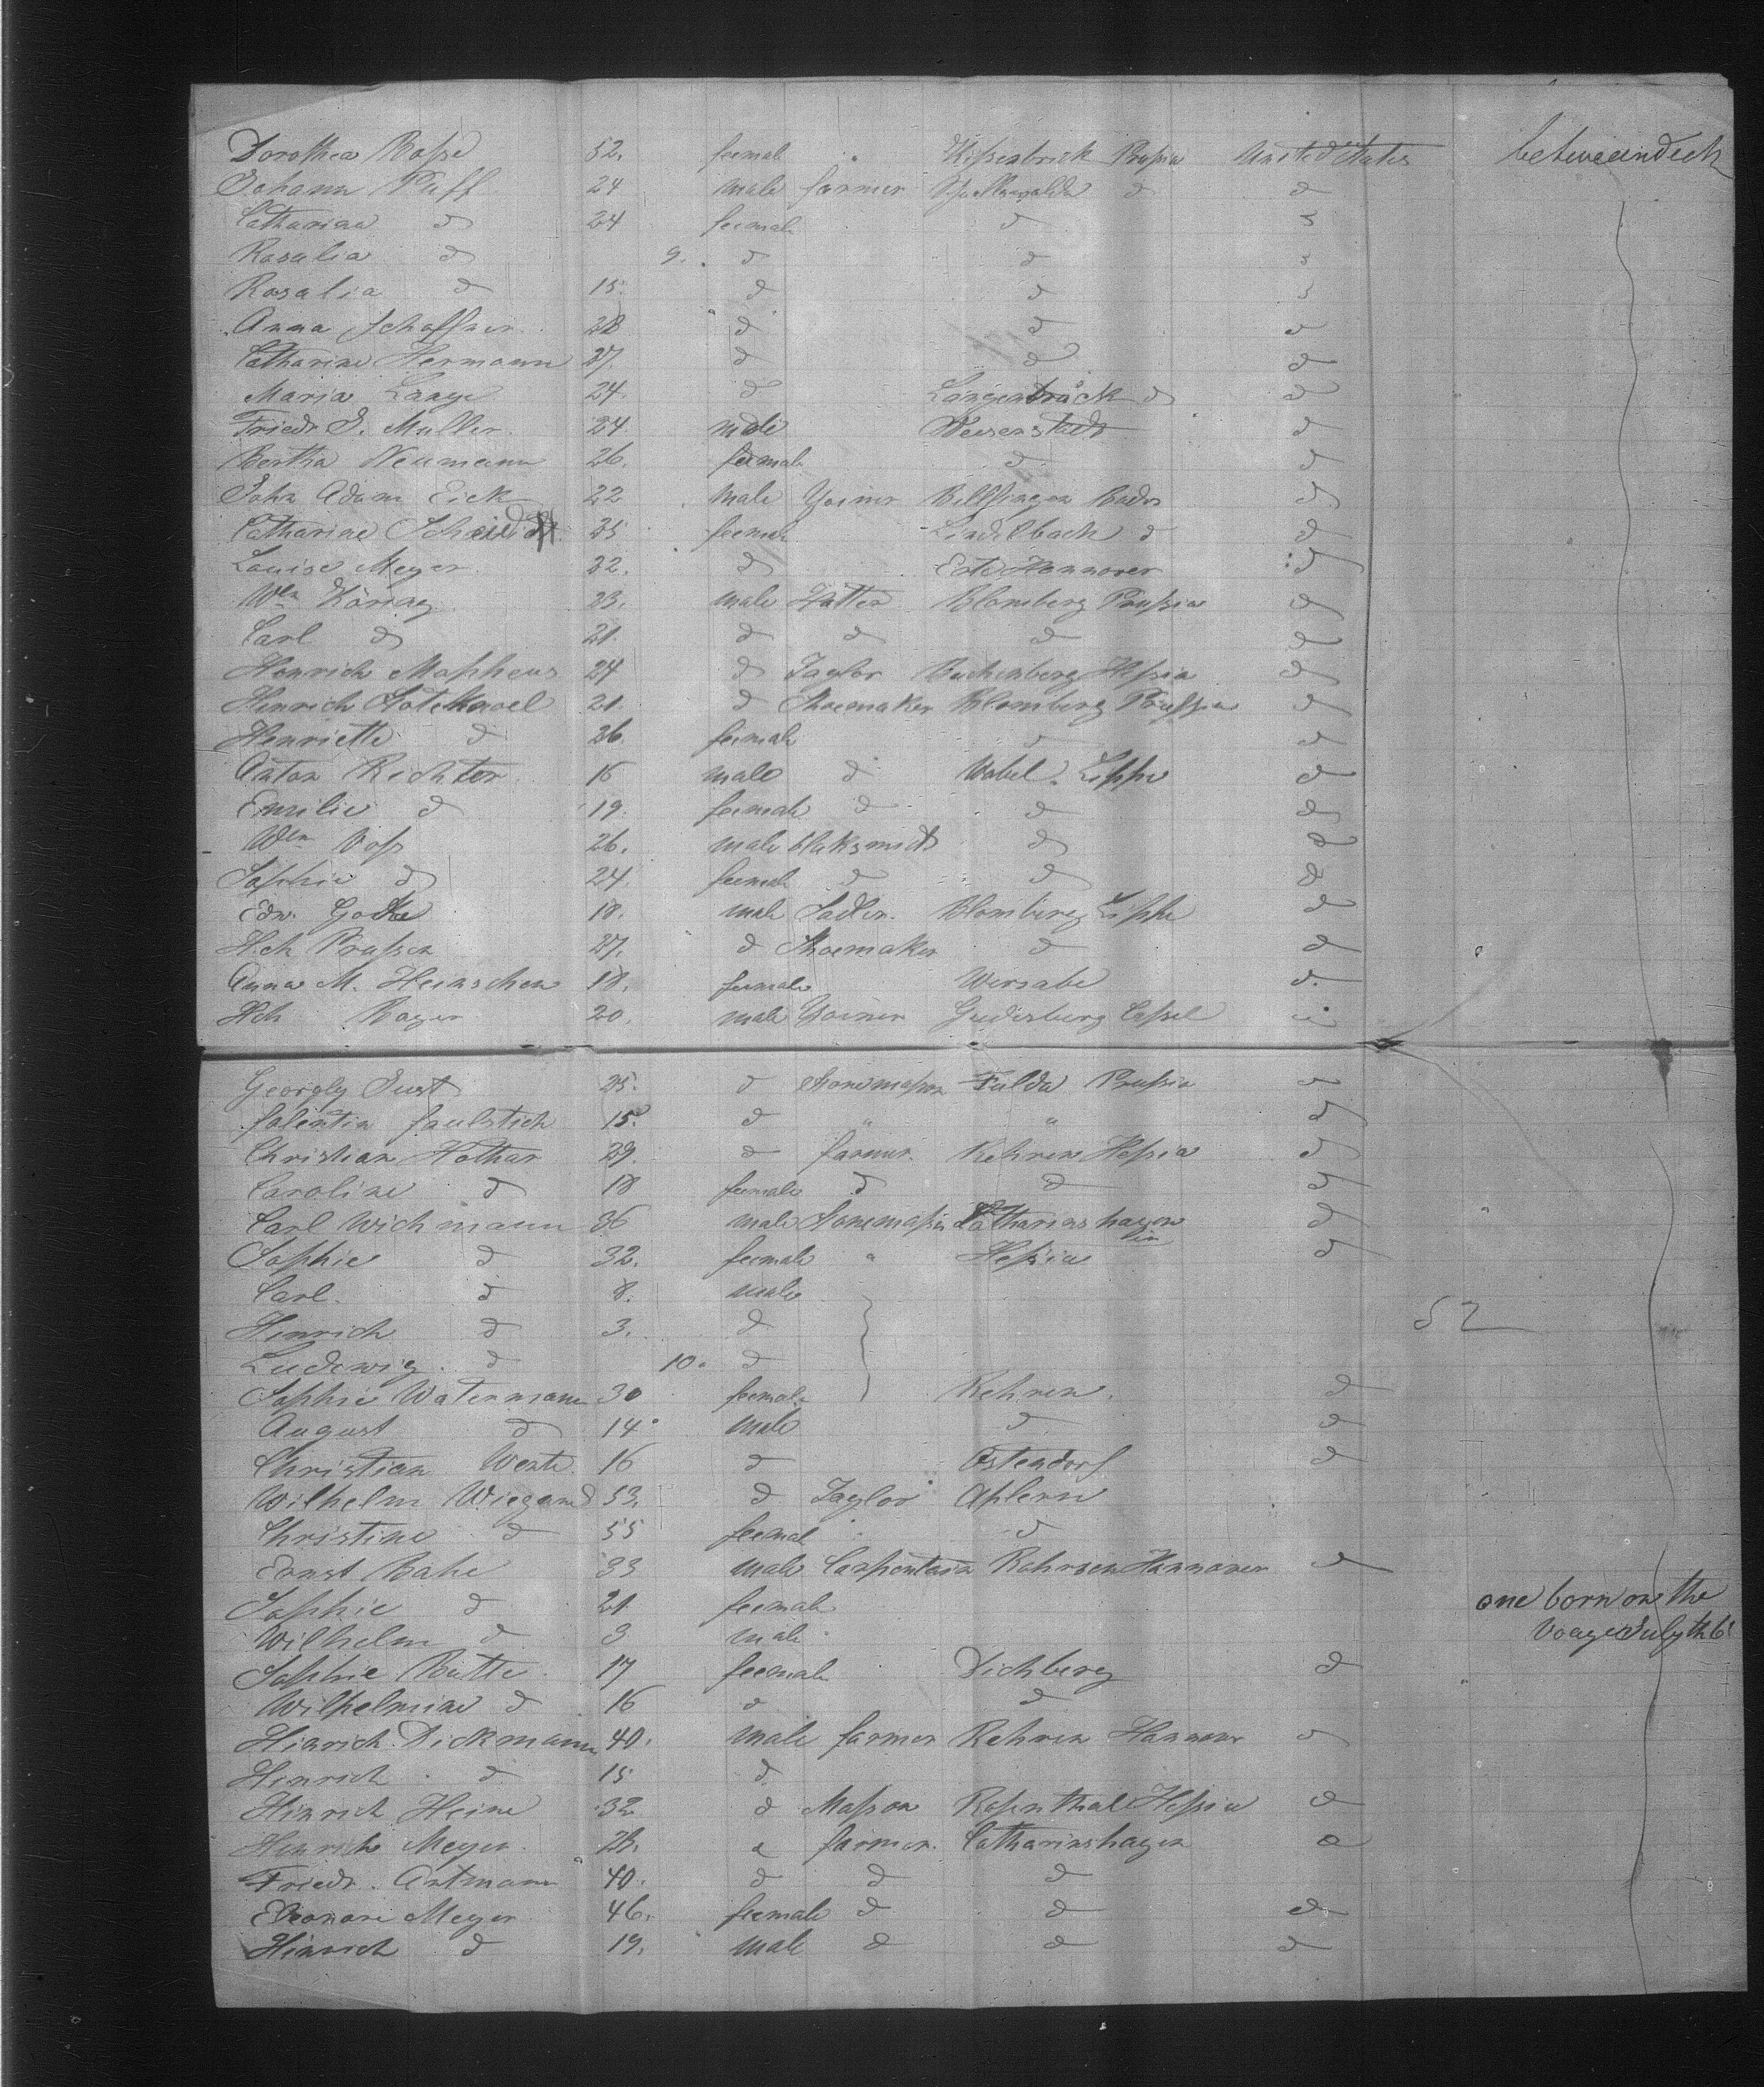 Dorothea Boße 52. feemal Kißenbrick Prußia United States betweendeck
Johann Puff 24 male farmer d d
Catharina d 24 feemale d d
Rosalia d 9. d d d
Rosalia d 15. d d d
Anna Schaffner 28 d d d
Catharine Hermann 27. d d d
Maria Lange 24. d Langenbrück d d
Friedr J. Muller 24 male d
Bertha Neumann 26. feemale d d
John Adam Eick 22 male Yoiner Billfingen Baden d
Catharine 35 feemale Lindelbach d d
Louise Meyer 32. d Hannover d
Wm Köring 23. male Blomberg Prußia d
Carl d 21. d d d d
Henrich Mapheus 24 d Taylor Buchenberg Heßia d
Henrich 21. d Shoemaker Blomberg Prußia d
Henriette d 26. feemale d d
Anton Richter 16 male d Wobel Lippe d
Emilie d 19. feemale d d d
Wm Voß 26. male blaksmith d d
Sophie d 24. feemale d d d
Edw. Godke 18. male Sadler. Blomberg Lippe d
Hch Prußen 27. d Shoemaker d d
Anna M. Heinschen 18. feemale Wersabe d.
Hch Bayer 20. male Yoiner Gudesburg Caßel
Georgly Just 25. d stonemaßon Fulda Prußia d
falentin faulstich 15. d " " d
Christian Hothar 29. d farmer. Rehren Heßia d
Caroline d 18 feemale d d d
Carl Wichmann 36 male Stonemaßon Catharinshagen d
Sophie d 32. feemale " in Heßia d
Carl. d 8. male
Henrich d 3. d 52
Ludewig. d 10. d
Sophie Watermann 30 feemale Rehren. d
August d 14. male d d
Christian Wente. 16 d Ostendorf d
Wilhelm Wiegand 53. d Taylor Aplern
Christine d 55 feemal d
Ernst Bahe 33 male Carpentair Rohrsen Hannover d
Sophie d 21 feemale one born on the
Wilhelm d 3 male Voage July th 6
Sophie Butte 17 feemale Dichberg d
Wilhelmine d 16 d d
Hinrich Dickmann 40. male farmer Rehren Hannover d
Hinrich d 15 d
Hinrich Heine 32 d Maßon Roßenthal Heßia d
Henrich Meyer. 28. d farmer. Catharinshagen d
Friedr. Artmann 40. d d d
Eleonore Meyer 46. feemale d d d
Hinrich d 19. male d d d